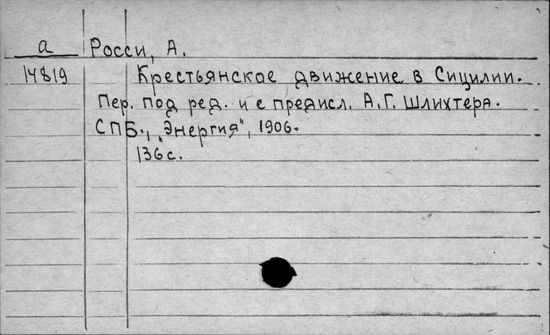 а Росси, А.
14819 Крестьянское движение в Сицилии.
Пер. под ред. и с предисл. А.Г. Шлихтера.
СПБ., „Энергия", 1906.
136 с.